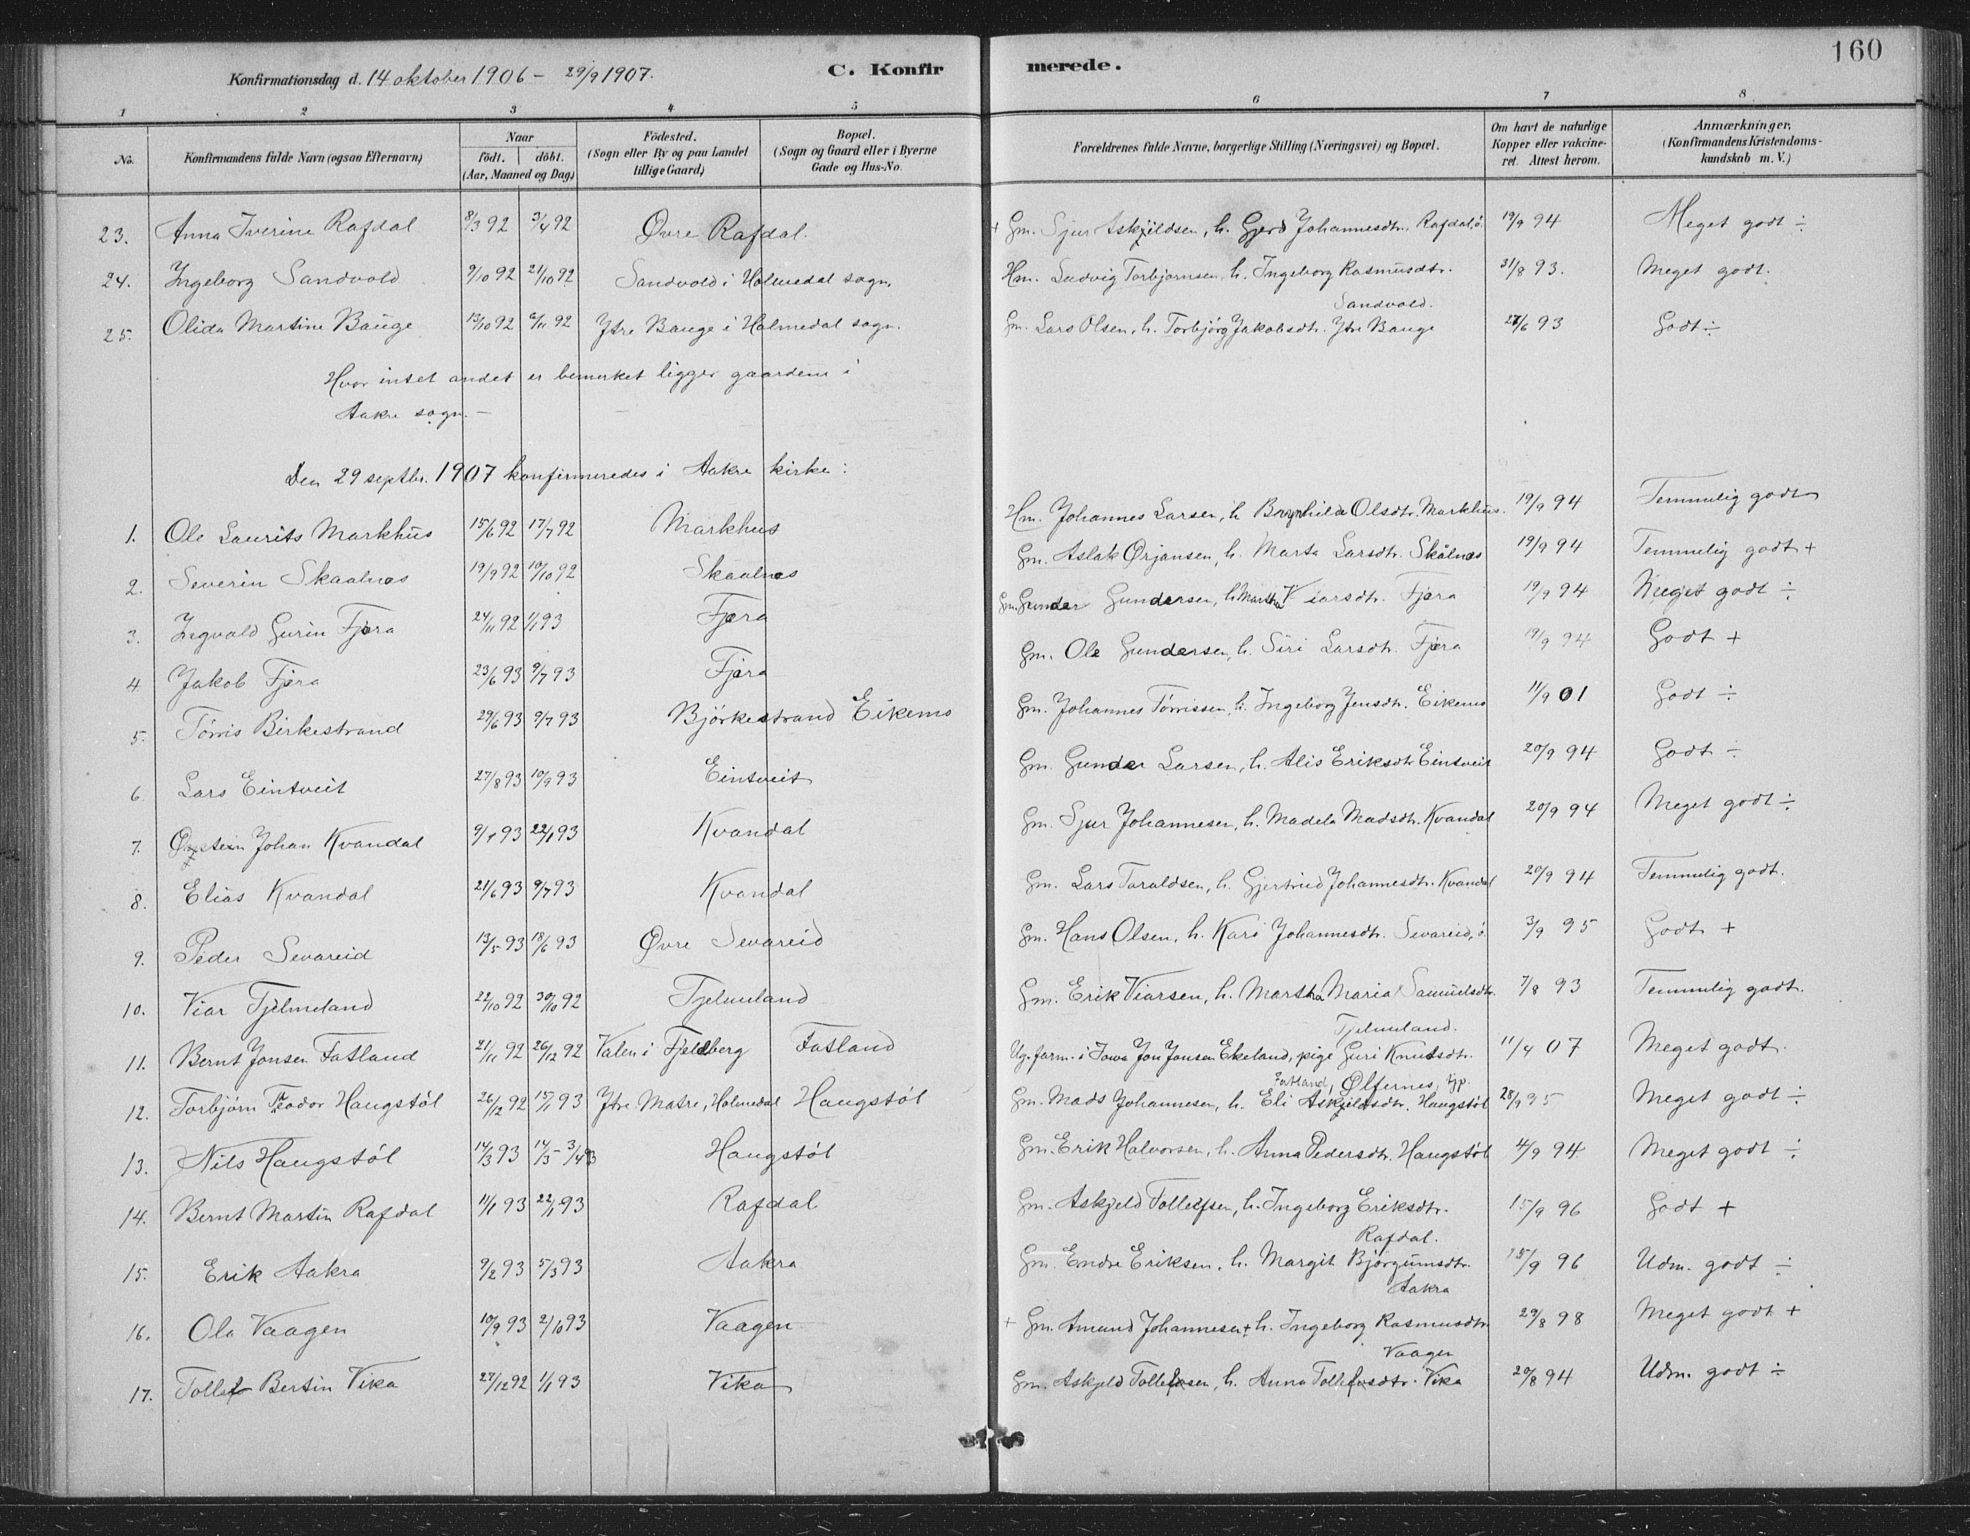 160
Konfirmationsdag d. 14 oktober 1906 – 29/9 1907.
C. Konfirmerede.
1 2 3 4 5 6 7 8
No.
Konfirmandens fulde Navn (ogsaa Efternavn)
Naar
födt. döbt.
(Aar, Maaned og Dag)
Födested.
(Sogn eller By og paa Landet
tillige Gaard)
Bopæl.
(Sogn og Gaard eller i Byerne
Gade og Hus-No.
Forældrenes fulde Navne, borgerlige Stilling (Næringsvei) og Bopæl.
Om havt de naturlige
Kopper eller vakcine-
ret. Attest herom.
Anmærkninger.
(Konfirmandens Kristendoms-
kundskab m. V.)
23. Anna Iverine Rafdal 8/3 92 3/4 92 Øvre Rafdal. + Gm. Sjur Askjildsen, h. Gjerd Johannesdtr. Rafdal, ö. 19/9 94 Meget godt ÷
24. Ingeborg Sandvold 9/10 92 21/10 92 Sandvold i Holmedal sogn. Hm. Ludvig Torbjørnsen, h. Ingeborg Rasmusdtr. 31/8 93. Meget godt.
Sandvold.
25. Olida Martine Bauge 13/10 92 6/11 92 Ytre Bauge i Holmedal sogn. Gm. Lars Olsen, h. Torbjörg Jakobsdtr. Ytre Bauge 27/6 93 Godt ÷
Hvor intet andet er bemerket ligger gaardene i
Aakre sogn. –
Den 29 septbr. 1907 konfirmeredes i Aakre kirke:
1. Ole Laurits Markhus 15/6 92 17/7 92 Markhus Hm. Johannes Larsen, h. Brynhilda Olsdtr. Markhus. 19/9 94 Temmelig godt
2. Severin Skaalnæs 19/9 92 10/10 92 Skaalnæs Gm. Aslak Ørjansen, h. Marta Larsdtr. Skålnæs 19/9 94 Temmelig godt +
3. Ingvald Gurin Fjæra 24/11 92 1/1 93 Fjæra Gm. Gunder Gundersen, h. Martha Viarsdtr. Fjæra 19/9 94 Meget godt ÷
4. Jakob Fjæra 23/6 93 9/7 93 Fjæra Gm. Ole Gundersen, h. Siri Larsdtr. Fjæra 19/9 94 Godt +
5. Törris Birkestrand 29/6 93 9/7 93 Björkestrand Eikemo Gm. Johannes Törrissen, h. Ingeborg Jensdtr. Eikemo 11/9 01 Godt ÷
6. Lars Eintveit 27/8 93 10/9 93 Eintveit Gm. Gunder Larsen, h. Alis Eriksdtr. Eintveit 20/9 94 Godt ÷
7. Øystein Johan Kvandal 9/1 93 22/1 93 Kvandal Gm. Sjur Johannesen, h. Madela Madsdtr. Kvandal 20/9 94 Meget godt ÷
8. Elias Kvandal 21/6 93 9/7 93 Kvandal Gm. Lars Taraldsen, h. Gjertrud Johannesdtr. Kvandal 20/9 94 Temmelig godt.
9. Peder Sevareid 13/5 93 18/6 93 Øvre Sevareid Gm. Hans Olsen, h. Kari Johannesdtr. Sevareid, ö. 3/9 95 Godt +
10. Viar Tjelmeland 22/10 92 30/10 92 Tjelmeland Gm. Erik Viarsen, h. Martha Maria Samuelsdtr. 7/8 93 Temmelig godt.
Tjelmeland.
11. Bernt Jonsen Fatland 21/11 92 26/12 92 Valen i Fjeldberg Fatland Ug. farm. i Iowa Jon Jonsen Ekeland, pige Guri Knutsdtr. 11/4 07 Meget godt.
Fatland, Ølfernes, tjp.
12. Torbjörn Teodor Haugstöl 26/12 92 15/1 93 Ytre Matre, Holmedal Haugstöl Gm. Mads Johannesen, h. Eli Askjeldsdtr. Haugstöl 28/9 95 Meget godt ÷
13. Nils Haugstöl 14/3 93 14/3 – 3/4 93 Haugstöl Gm. Erik Halvorsen, h. Anna Pedersdtr. Haugstöl 4/9 94 Meget godt ÷
14. Bernt Martin Rafdal 11/1 93 22/1 93 Rafdal Gm. Askjeld Tollefsen, h. Ingeborg Eriksdtr. 15/9 96 Godt +
Rafdal.
15. Erik Aakra 9/2 93 5/3 93 Aakra Gm. Endre Eriksen, h. Margit Björgumsdtr. 15/9 96 Udm. godt ÷
Aakra
16. Ola Vaagen 10/9 93 2/10 93 Vaagen + Gm. Amund Johannesen + h. Ingeborg Rasmusdtr. 29/8 98 Meget godt +
Vaagen
17. Tollef Bertin Vika 27/12 92 1/1 93 Vika Gm. Askjeld Tollefsen, h. Anna Tollefsdtr. Vika 20/8 94 Udm. godt ÷